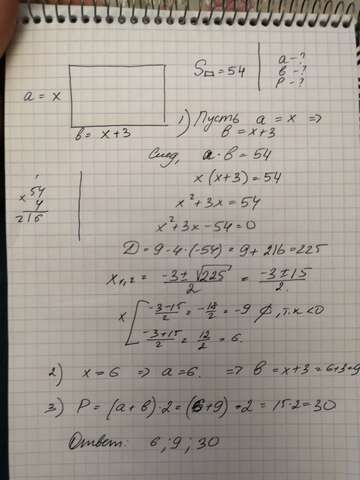 S□ = 54
a - ?
в - ?
P - ?
a = x
в = x + 3
1) Пусть a = x ⇒
в = x + 3
След, a · в = 54
x (x + 3) = 54
x² + 3x = 54
x² + 3x - 54 = 0
1
× 54
4
216
D = 9 - 4 · (-54) = 9 + 216 = 225
x₁,₂ = (-3 ± √225)/2 = (-3 ± 15)/2.
x [ (-3-15)/2 = -18/2 = -9 ∅, т.к < 0
(-3+15)/2 = 12/2 = 6.
2) x = 6 ⇒ a = 6. ⇒ в = x + 3 = 6 + 3 = 9
3) P = (a + в) · 2 = (6 + 9) · 2 = 15 · 2 = 30
Ответ: 6 ; 9 ; 30